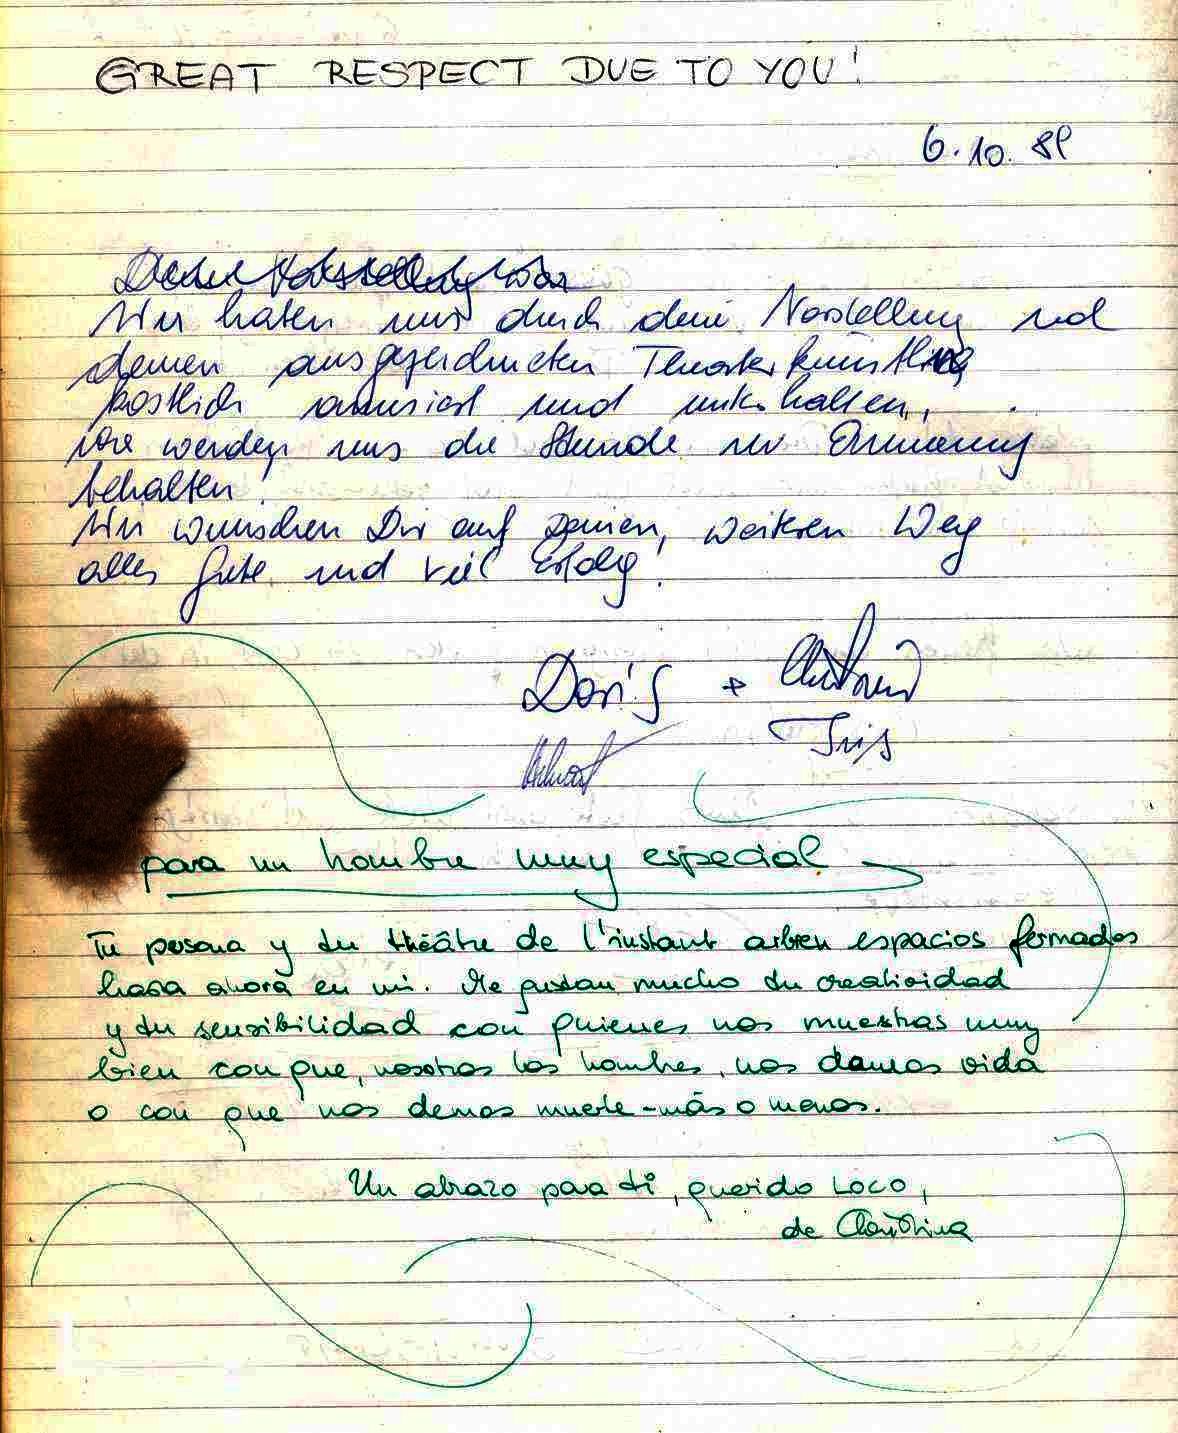 GREAT RESPECT DUE TO YOU!
6.10.89
Deine Vorstellung war
Wir haben uns durch deine Vorstellung und
deinen ausgezeichneten
köstlich amüsiert und unterhalten,
wir werden uns die Stunde in Erinnerung
behalten!
Wir wünschen Dir auf deinen, weiteren Weg
alles Gute und viel Erfolg!
Doris +
Iris
para un hombre muy especial
Tu persona y tu théâtre de l'instant abren espacios fermados
hasa ahora en mi. Me gustan mucho tu creatividad
y tu sensibilidad con quienes nos muestras muy
bien con que, nosotros los hombres, nos damos vida
o con que nos demos muerte - más o menos.
Un abrazo para ti, querido LOCO,
de Christina